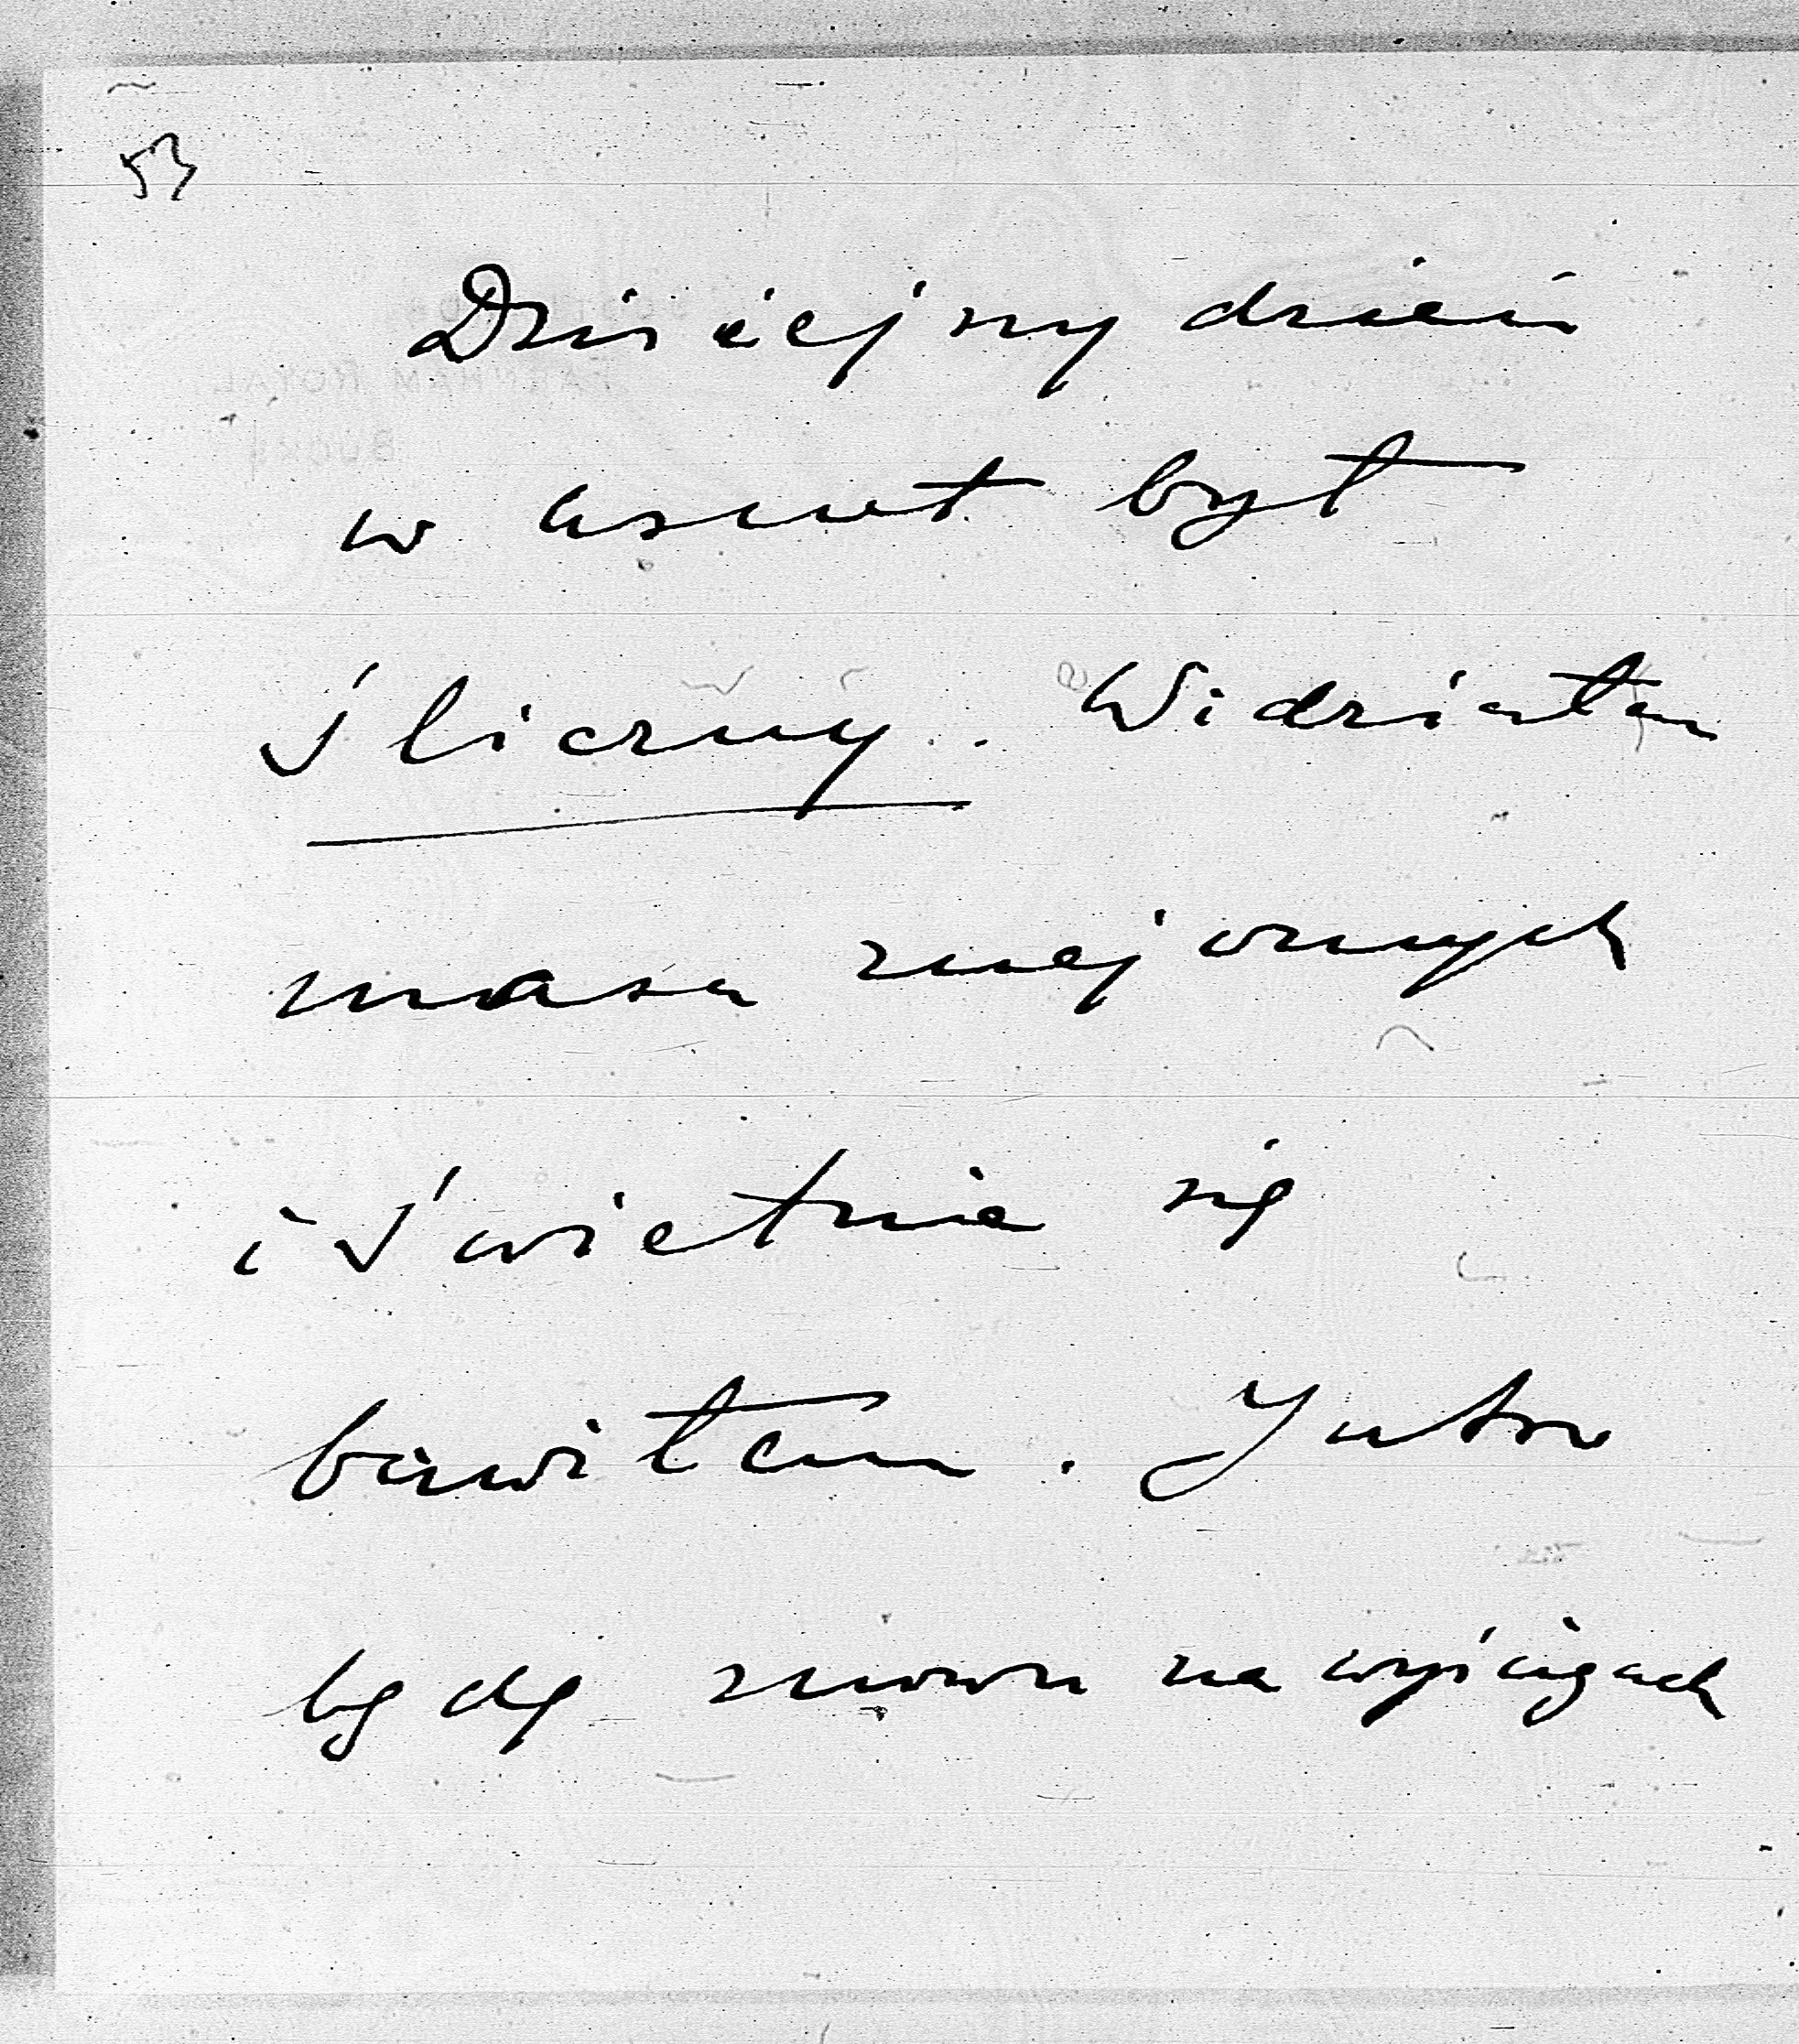 53
Dzisiejszy dzień
w Ascot był
śliczny. Widziałam
masa znajomych
i świetnie się
bawiłam. Jutro
będę znowu na wyścigach